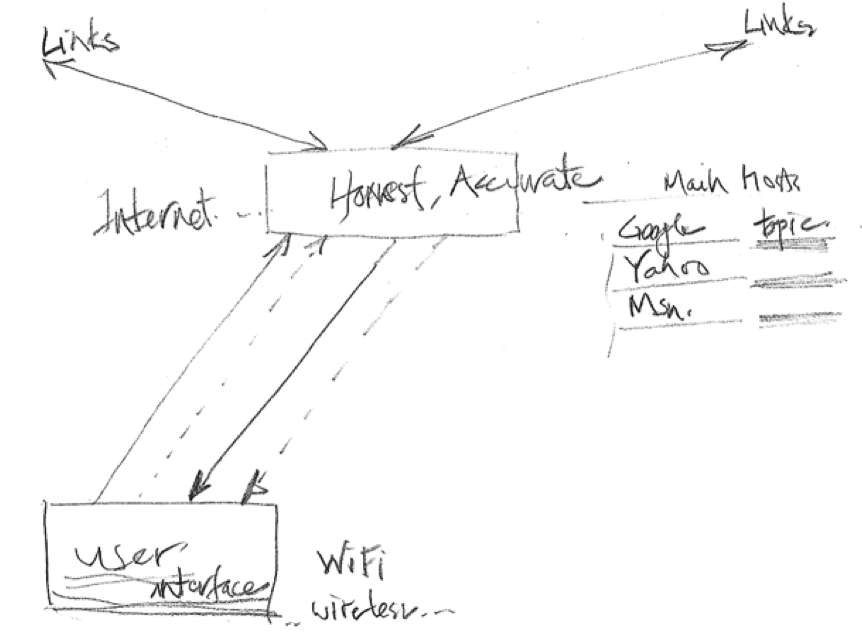 Links
Links
Internet...
Honest, Accurate
Main Hosts
Google topic.
Yahoo
Msn.
user
interface
WiFi
..wireless...